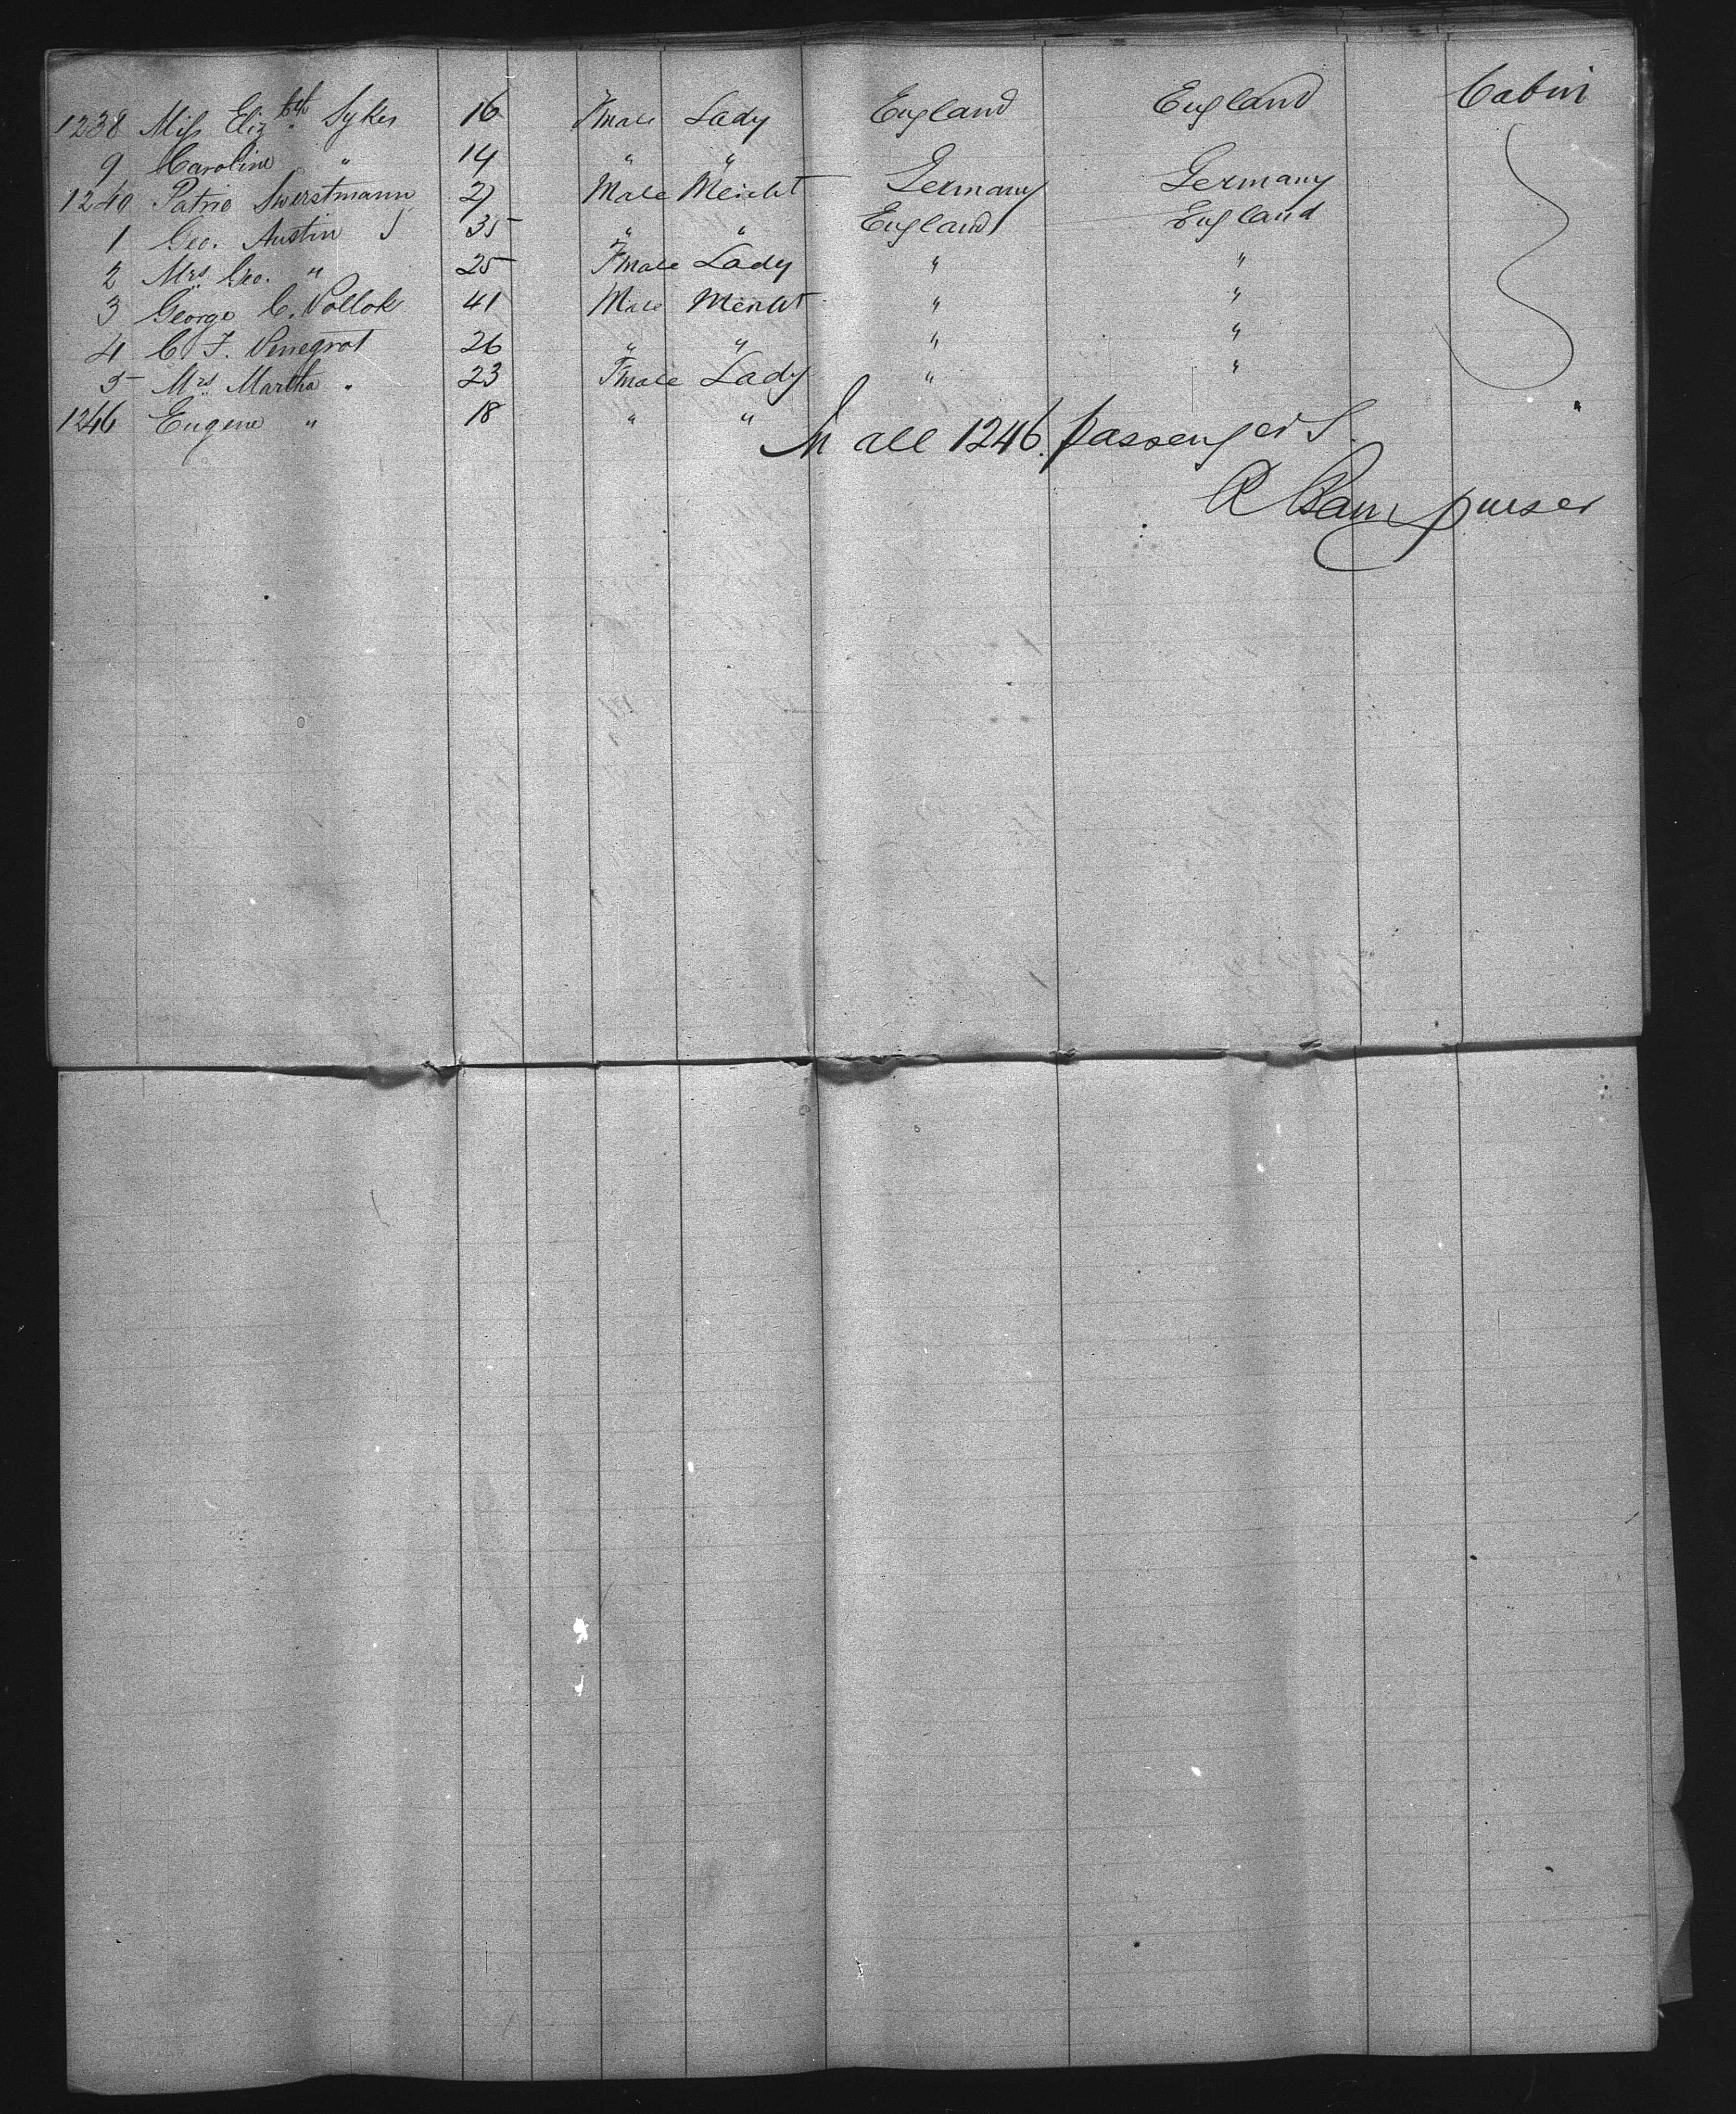 1238 Miss Elizbth Sykes 16 Fmale Lady England England Cabin
9 Caroline " 14 " "
1240 Patric 27 Male Mercht Germany Germany
1 Geo. Austin 35 " " England England
2 Mrs Geo. " 25 Fmale Lady " "
3 George C. Pollok 41 Male Mercht " "
4 C F. 26 " " " "
5 Mrs Martha " 23 Fmale Lady " "
1246 Eugene " 18 " " "
In all 1246 passengers
purser